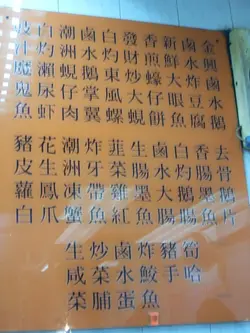 金興鹵水鵝
鹵水炸豆腐
新鮮大眼魚
香煎蠔仔餅
發財炒大蜆
白灼東風螺
鹵水鵝掌翼
潮洲蜆仔肉
白灼瀨尿蝦
豉汁魔鬼魚
去骨鵝片
香腸墨魚
白灼鵝腸
鹵水大腸
生腸墨魚
韮菜雞紅
炸牙帶魚
潮洲凍蟹
花生鳳爪
豬皮蘿白
筍哈
豬手
炸鮫魚
鹵水蛋
炒菜脯
生咸菜